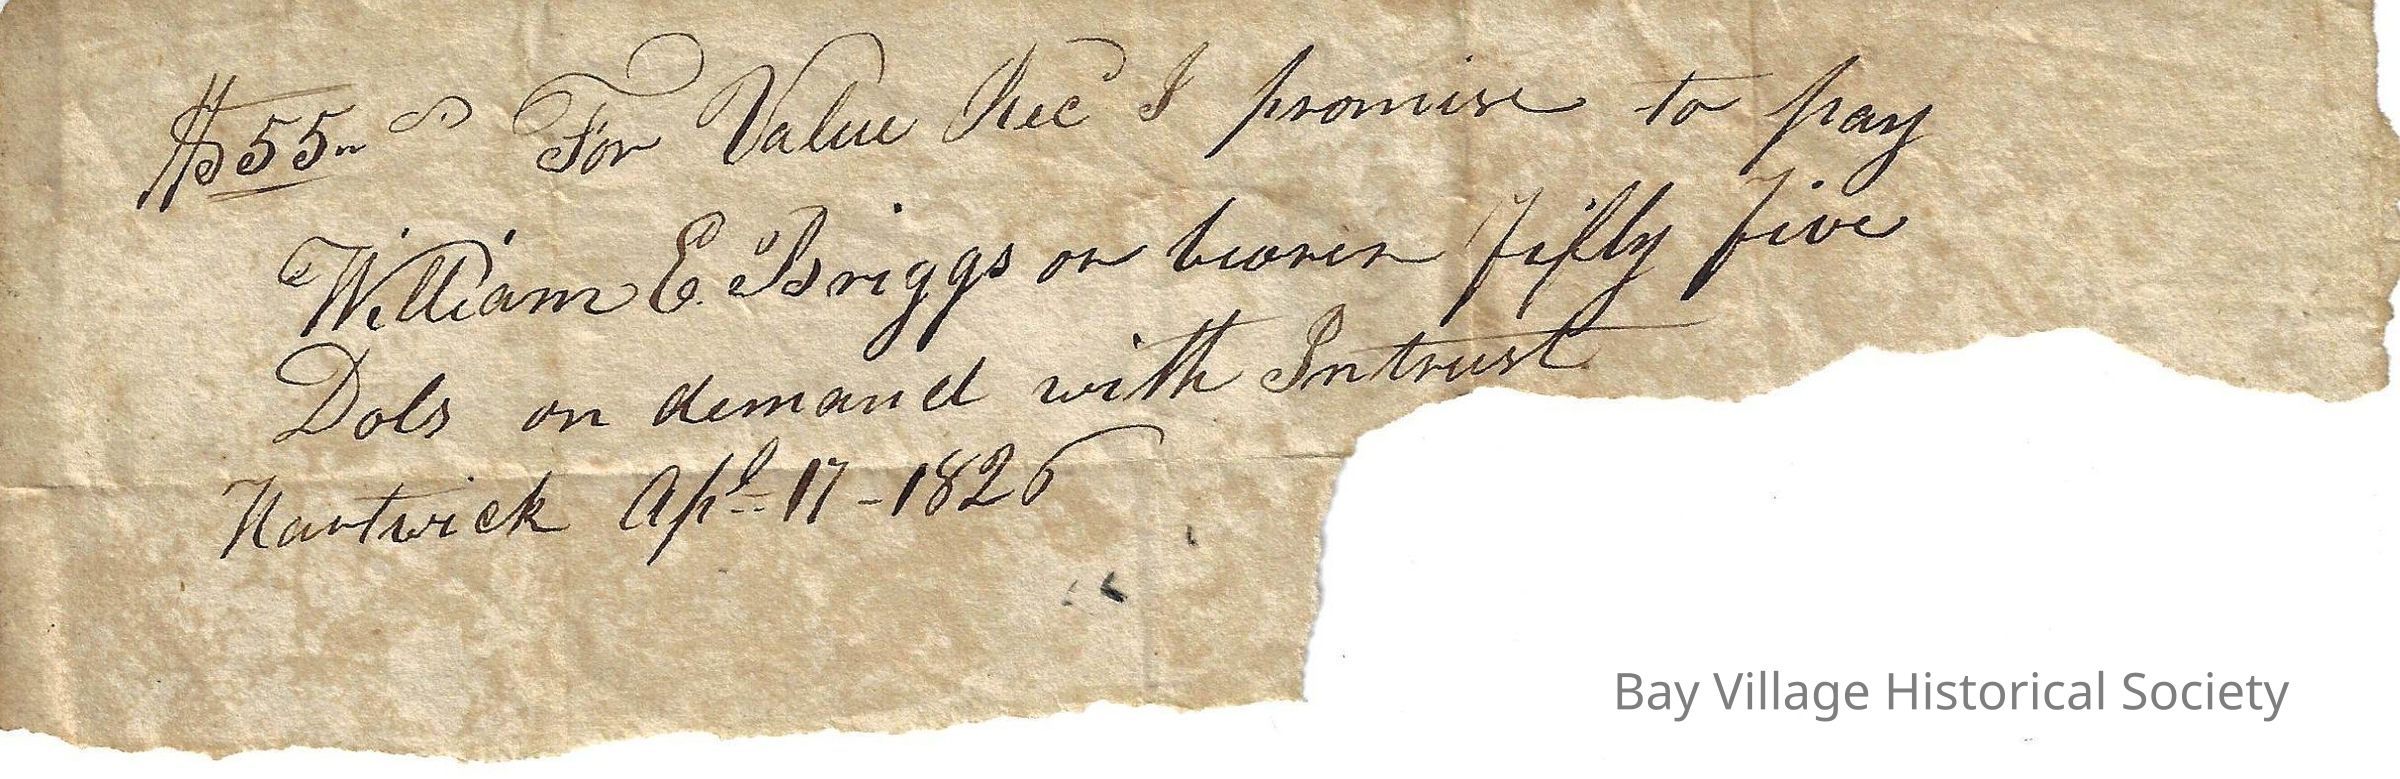 $55.. For Value Recd I promise to pay
William E. Briggs or bearer fifty five
Dols on demand with Intrust
Hartwick Apl 17 - 1826
Bay Village Historical Society